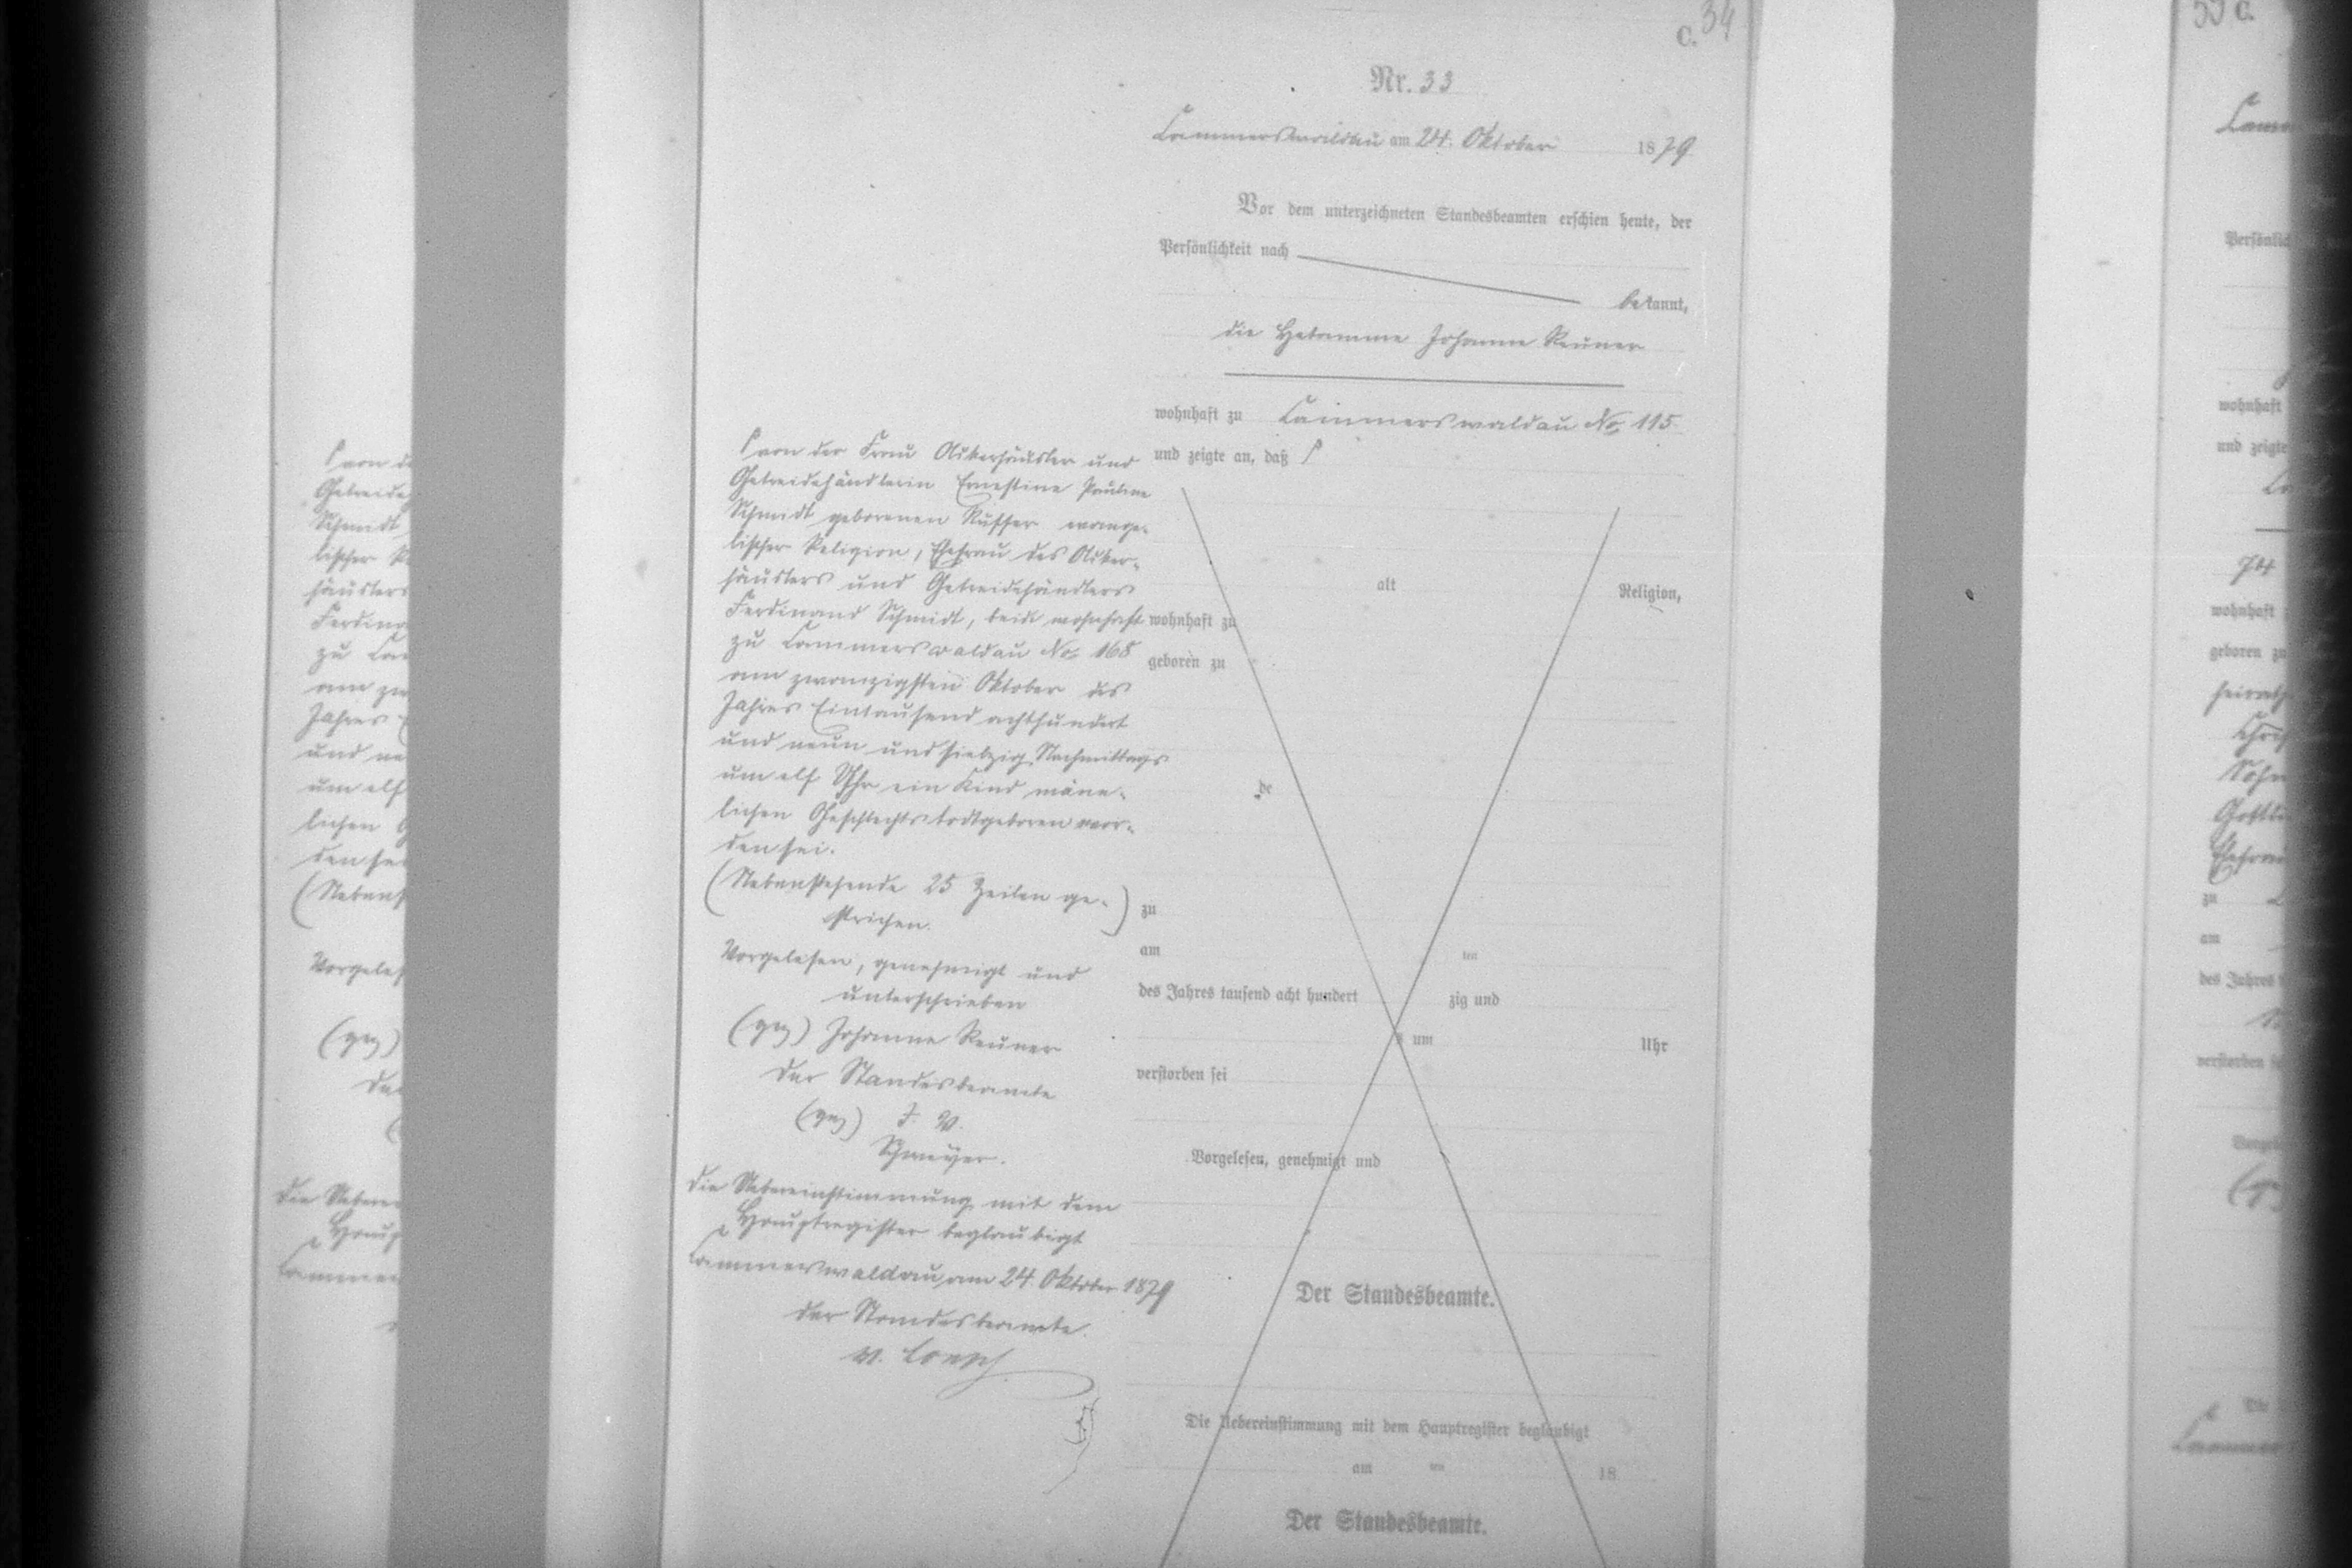 C. 34
Nr. 33
Lammerswaldau am 24. Oktober 1879
Vor dem unterzeichneten Standesbeamten erschien heute, der
Persönlichkeit nach
bekannt,
die Hebamme Johanne Reuner
wohnhaft zu Lammerswaldau No 115
und zeigte an, daß ſ
ſ von der Frau Ackerhäusler und
Getreidehändlerin Ernestine Pauline
Schmidt geborenen Ruffer evange-
lischer Religion, Ehefrau des Acker-
häuslers und Getreidehändlers
Ferdinand Schmidt, beide wohnhaft
zu Lammerswaldau No 168
am zwanzigsten Oktober des
Jahres Eintausend achthundert
und neun und siebzig Nachmittags
um elf Uhr ein Kind männ-
lichen Geschlechts todtgeboren wor-
den sei.
(Nebenstehende 25 Zeilen ge-
strichen.)
Vorgelesen, genehmigt und
unterschrieben
(gez) Johanne Reuner
Der Standesbeamte
(gez) J. V.
Die Uebereinstimmung mit dem
Hauptregister beglaubigt
Lammerswaldau, am 24. Oktober 1879
Der Standesbeamte.
v. Loesch
alt Religion,
wohnhaft zu
geboren zu
de
zu
am ten
des Jahres tausend acht hundert zig und
s um Uhr
verstorben sei
Vorgelesen, genehmigt und
Der Standesbeamte.
Die Uebereinstimmung mit dem Hauptregister beglaubigt
am ten 18
Der Standesbeamte.